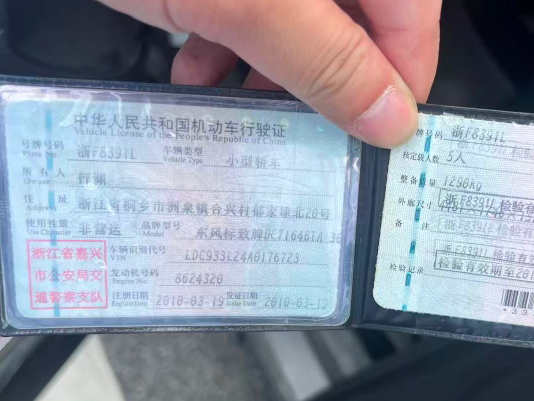 中华人民共和国机动车行驶证
Vehicle License of the People's Republic of China
号牌号码 浙F8391L 车辆类型 小型轿车
Plate No. Vehicle Type
所有人
Owner
住址 浙江省桐乡市洲泉镇合兴村郁家埭北20号
Address
使用性质 非营运 品牌型号 东风标致牌DC7164BTA
Use Character Model
浙江省嘉兴
市公安局交
通警察支队
车辆识别代号 LDC933L24A0176723
VIN
发动机号码 8624320
Engine No.
注册日期 2010-03-19 发证日期 2010-03-19
Register Date Issue Date
号牌号码 浙F8391L
核定载人数 5人
整备质量 1296kg
外廓尺寸
浙F8391L 检验有
备注
浙F8391L 检验有
检验记录
检验有效期至